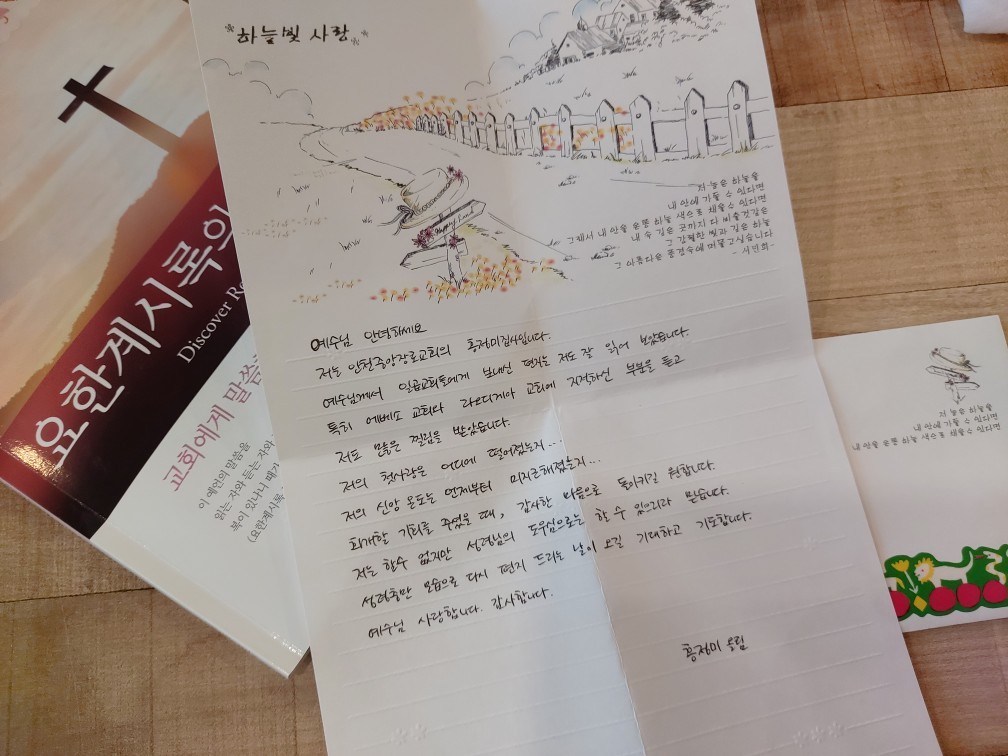 하늘빛 사랑
Happy Land
저 높은 하늘을
내 안에 가둘 수 있다면
그래서 내 안을 온통 하늘 색으로 채울수 있다면
내 속 깊은 곳까지 다 비출것같은
그 강렬한 빛과 깊은 하늘
그 아름다운 풍경속에 머물고싶습니다
- 서민희 -
예수님 안녕하세요
저는 인천중앙장로교회의 홍정미집사입니다.
예수님께서 일곱교회들에게 보내신 편지는 저도 잘 읽어 보았습니다.
특히 에베소 교회와 라오디게아 교회에 지적하신 부분을 듣고
저도 많은 찔림을 받았습니다.
저의 첫사랑은 어디에 떨어졌는지...
저의 신앙 온도는 언제부터 미지근해졌는지...
회개할 기회를 주셨을 때, 감사한 마음으로 돌이키길 원합니다.
저는 할수 없지만 성령님의 도우심으로는 할 수 있으리라 믿습니다.
성령충만 모습으로 다시 편지 드리는 날이 오길 기대하고 기도합니다.
예수님 사랑합니다. 감사합니다.
홍정미 올림
요한계시록의
Discover Re
교회에게 말씀
이 예언의 말씀을
읽는 자와 듣는 자와
복이 있나니 때가
(요한계시록
저 높은 하늘을
내 안에 가둘 수 있다면
내 안을 온통 하늘 색으로 채울수 있다면